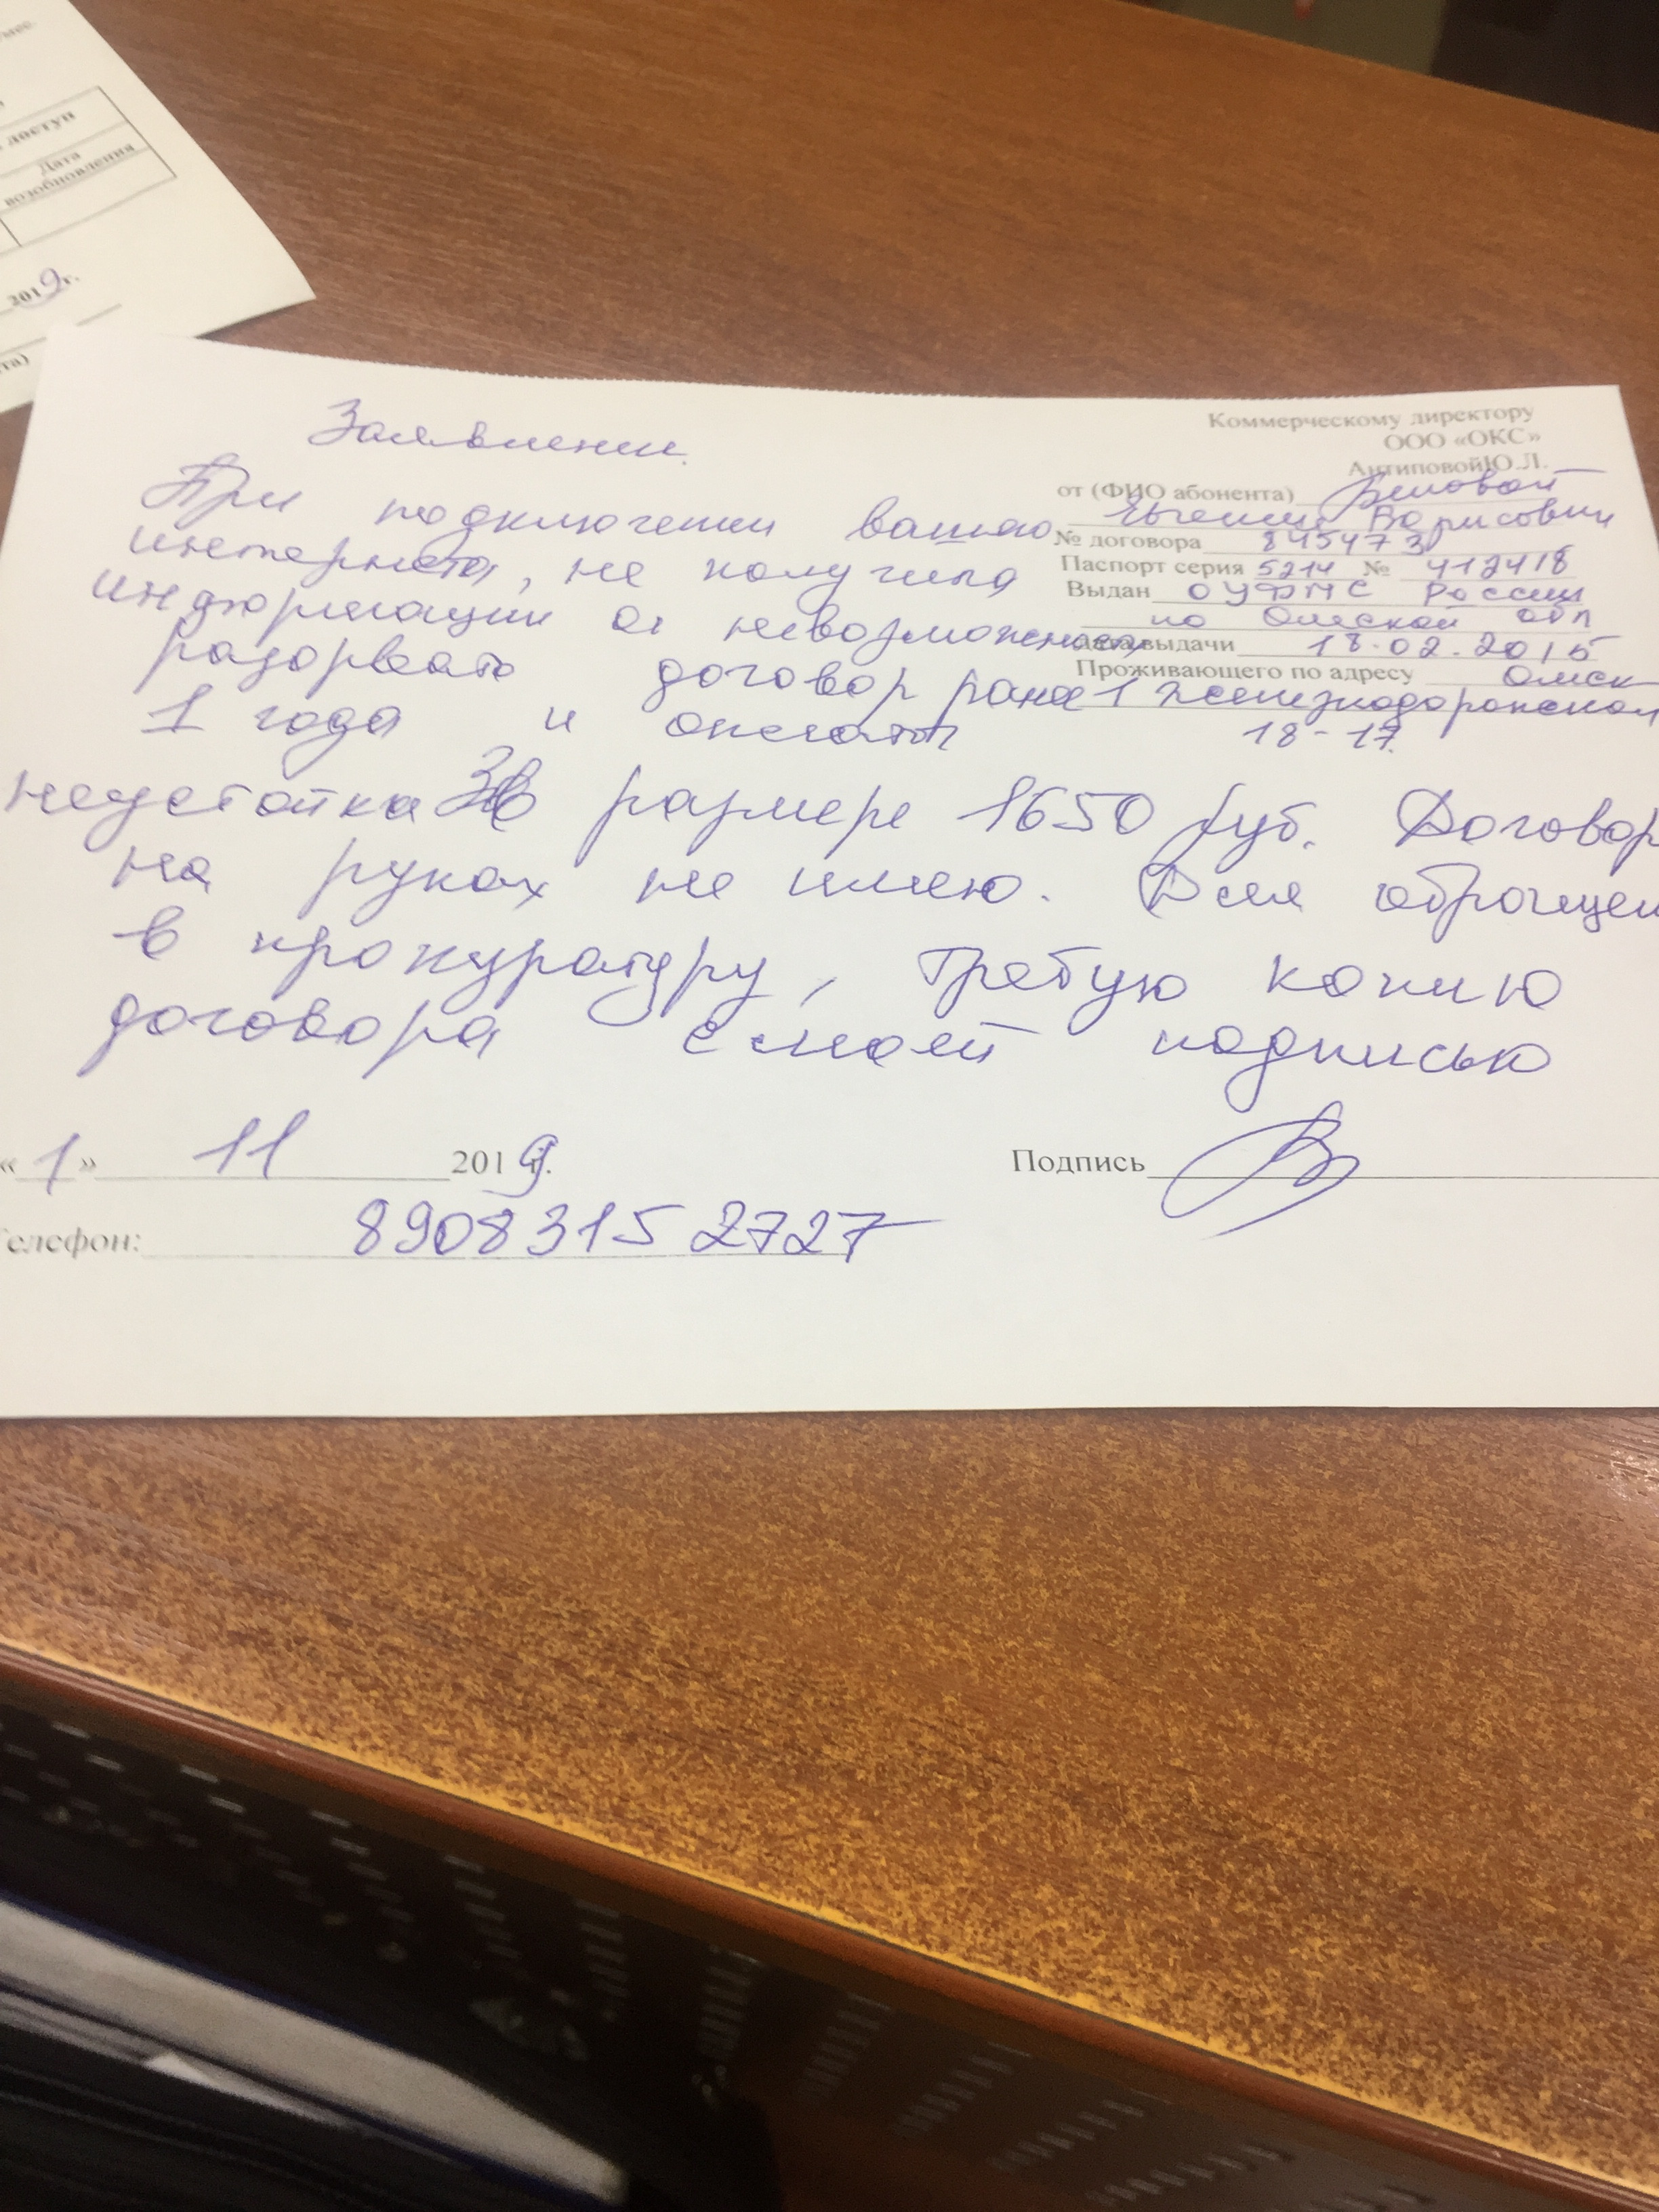 доступ
Дата
возобновления
2019г.
та)
Коммерческому директору
ООО «ОКС»
АнтиповойЮ.Л.
от (ФИО абонента) Беловой
Евгении Борисовны
№ договора 845473
Паспорт серия 5214 № 412418
Выдан ОУФМС России
по Омской обл
дата выдачи 18.02.2015
Проживающего по адресу Омск
1 Железнодорожная
18-17.
Заявление.
При подключении вашего
интернета, не получила
информации о невозможности
разорвать договор ранее
1 года и оплаты
неустойка в размере 1650 руб. Договор
на руках не имею. Для обращен
в прокуратуру, требую копию
договора с моей подписью
«1» 11 2019г.
Подпись
Телефон: 89083152727